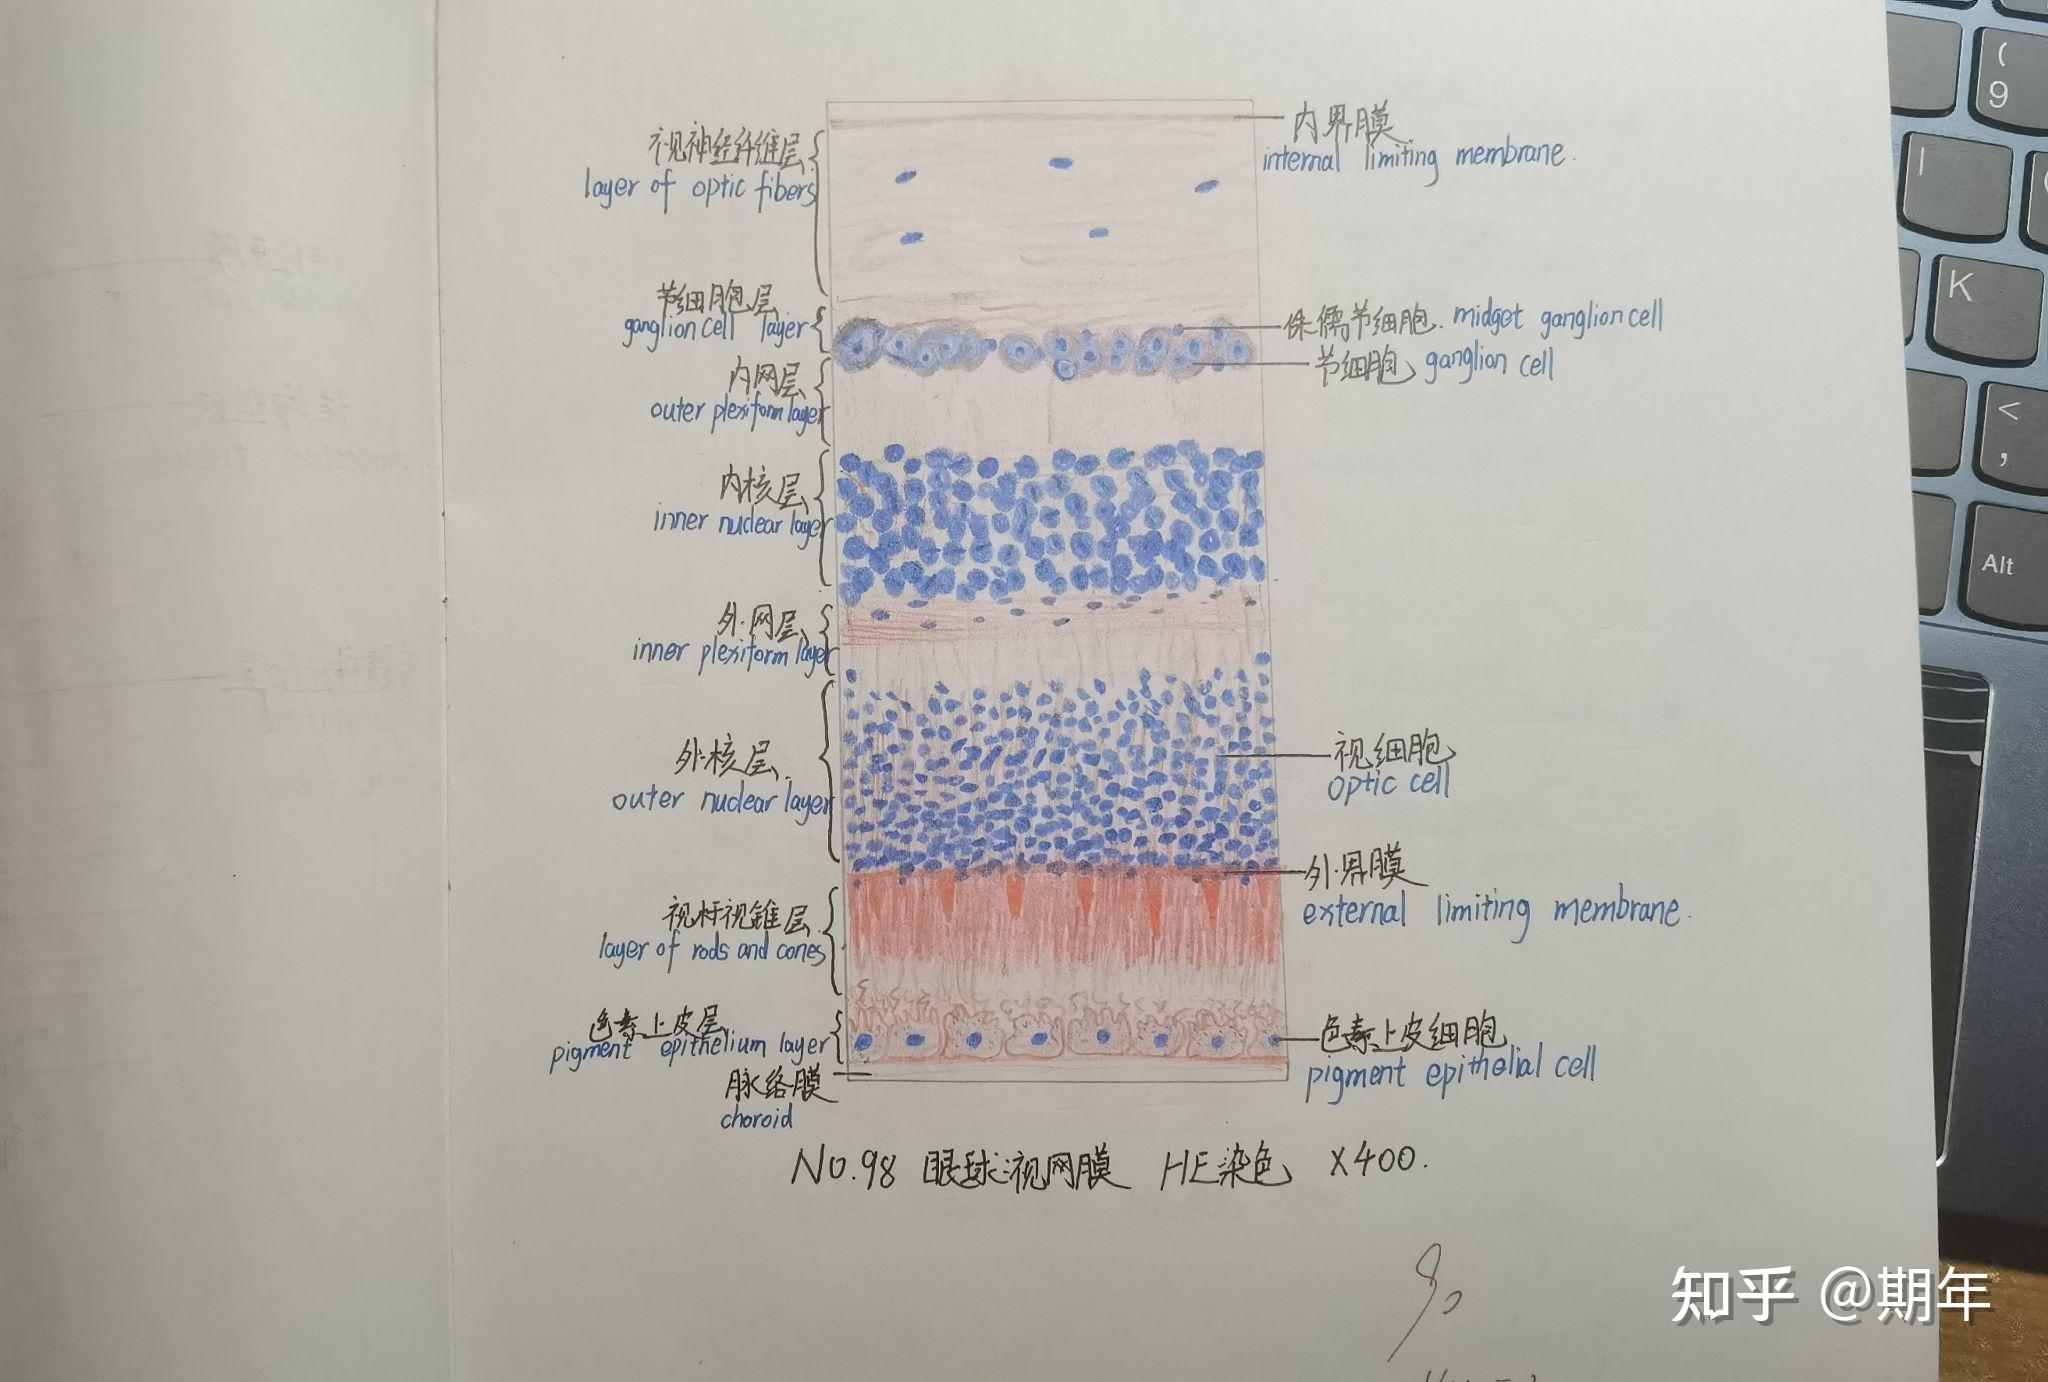 视神经纤维层
layer of optic fibers
内界膜
internal limiting membrane.
节细胞层
ganglion cell layer
侏儒节细胞. midget ganglion cell
节细胞 ganglion cell
内网层
outer plexiform layer
内核层
inner nuclear layer
外网层
inner plexiform layer
外核层
outer nuclear layer
视细胞
optic cell
外界膜
external limiting membrane.
视杆视锥层
layer of rods and cones
色素上皮层
pigment epithelium layer
色素上皮细胞
pigment epithelial cell
脉络膜
choroid
No.98 眼球视网膜 HE染色 X400.
90
知乎 @期年
(
9
K
<
,
Alt